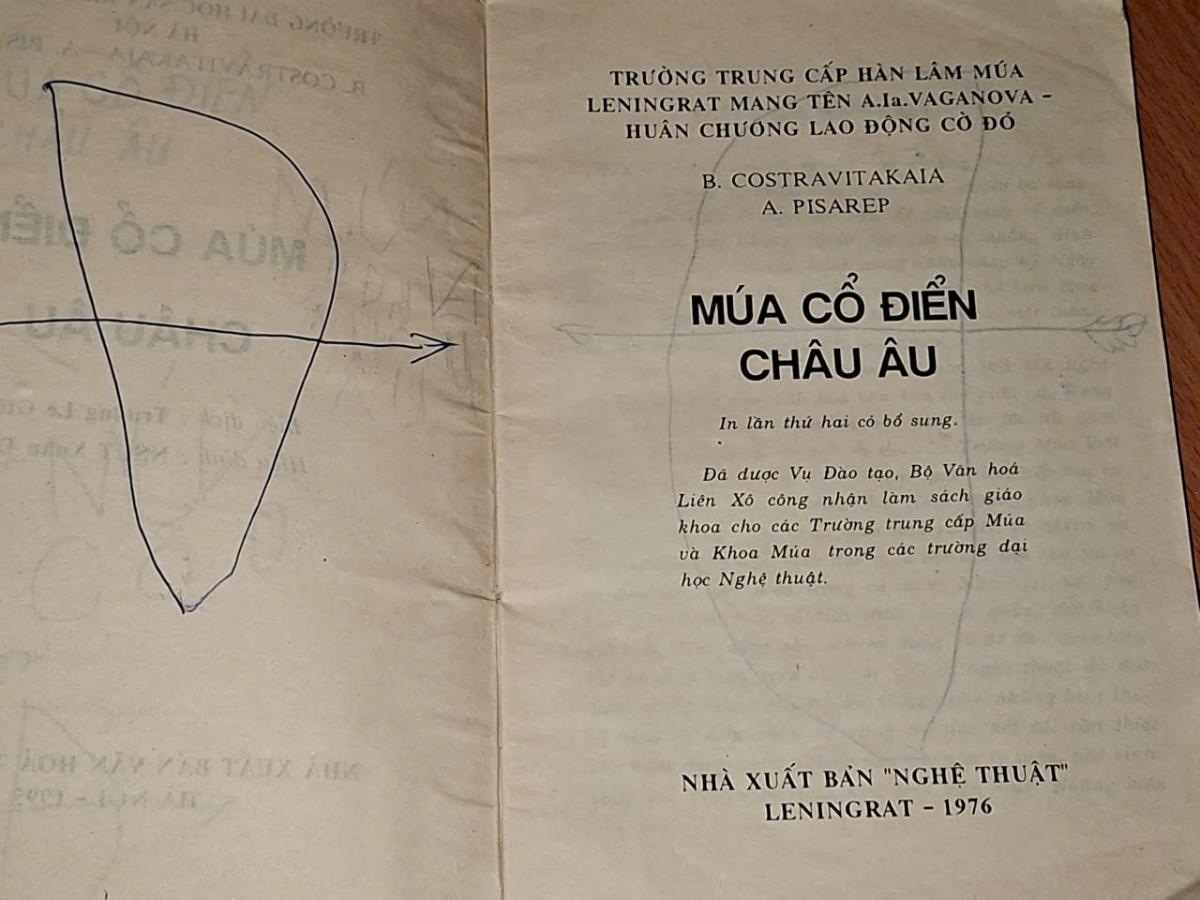 TRƯỜNG TRUNG CẤP HÀN LÂM MÚA
LENINGRAT MANG TÊN A.Ia.VAGANOVA –
HUÂN CHƯƠNG LAO ĐỘNG CỜ ĐỎ
B. COSTRAVITAKAIA
A. PISAREP
MÚA CỔ ĐIỂN
CHÂU ÂU
In lần thứ hai có bổ sung.
Đã được Vụ Đào tạo, Bộ Văn hoá
Liên Xô công nhận làm sách giáo
khoa cho các Trường trung cấp Múa
và Khoa Múa trong các trường đại
học Nghệ thuật.
NHÀ XUẤT BẢN "NGHỆ THUẬT"
LENINGRAT – 1976